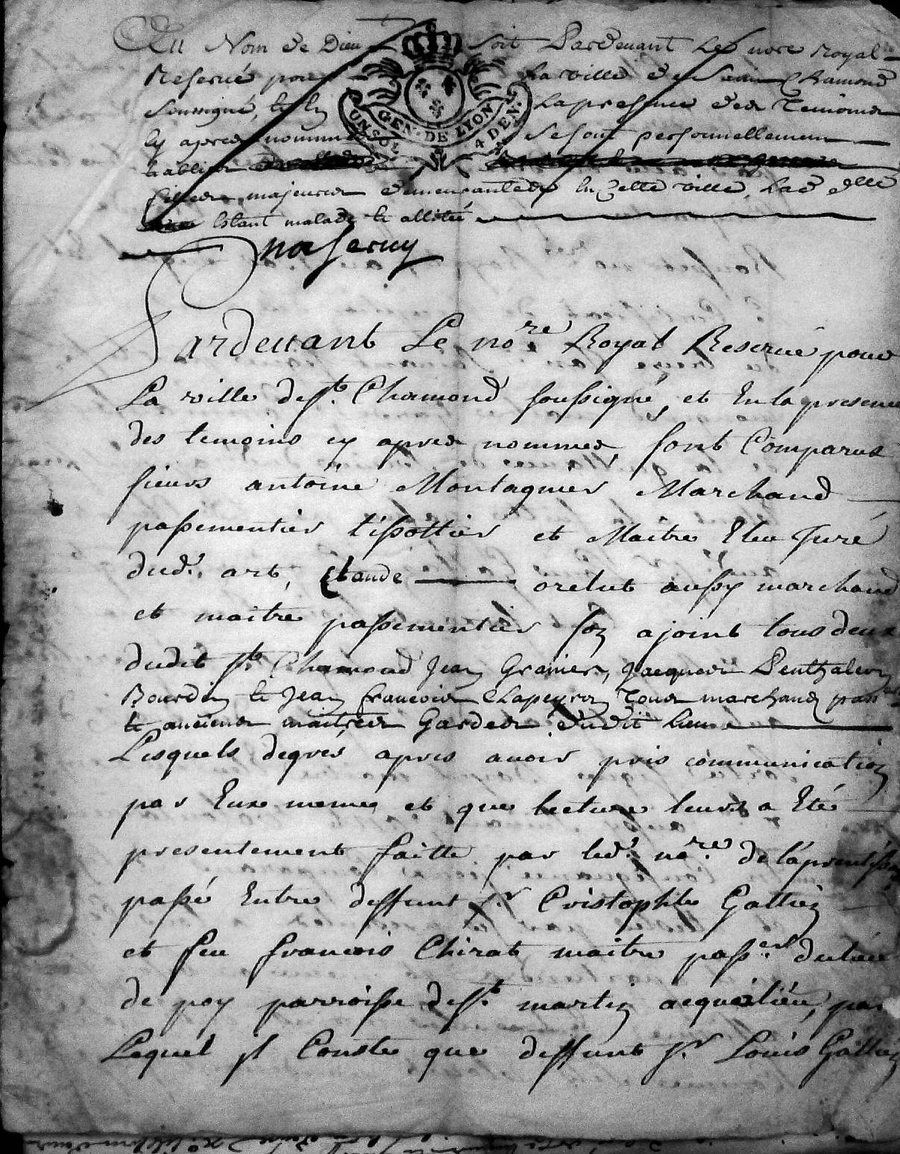 Au Nom de Dieu soit Pardevant Le nore Royal
Reservé pour la ville de Saint Chamond
soussigné, et en la presence des Temoins
cy apres nommés se sont personnellement
establies
filles majeures demeurantes en cette ville, Lad. elle
estant malade et allitée
GEN. DE LYON
UN SOL 4 DEN.
Pardevant Le nore Royal Reservé pour
La ville de st. Chamond soussigné, et En la presence
des temoins cy apres nommés, sont Comparus
sieurs antoine Montagnier Marchand
passementier tissottier et Maitre Elu Juré
dud. art, Claude orelut aussy marchand
et maitre passementier son ajoint tous deux
dudit st. Chamond Jean Granier, Jacques Penthaleon
Bourdin et Jean francois Clapeyron Tous marchands pass
et anciens maitres Gardes dudit lieu
Lesquels de gré apres avoir pris communication
par Eux memes et que lecture leurs a Eté
presentement faitte par led. nre. de l'aprentissage
passé Entre deffunt sr Cristophle Gattier
et feu francois Chirat maitre passer du lieu
de poy parroisse de st. martin acqualieu, par
Lequel jl Conste que deffunt sr Louis Gattier